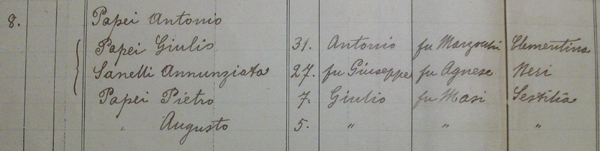 8. Papei Antonio
Papei Giulio 31. Antonio fu Clementina
Sanelli Annunziata 27. fu Giuseppe fu Agnese Neri
Papei Pietro 7. Giulio fu Masi Sestilia
" Augusto 5. " " "